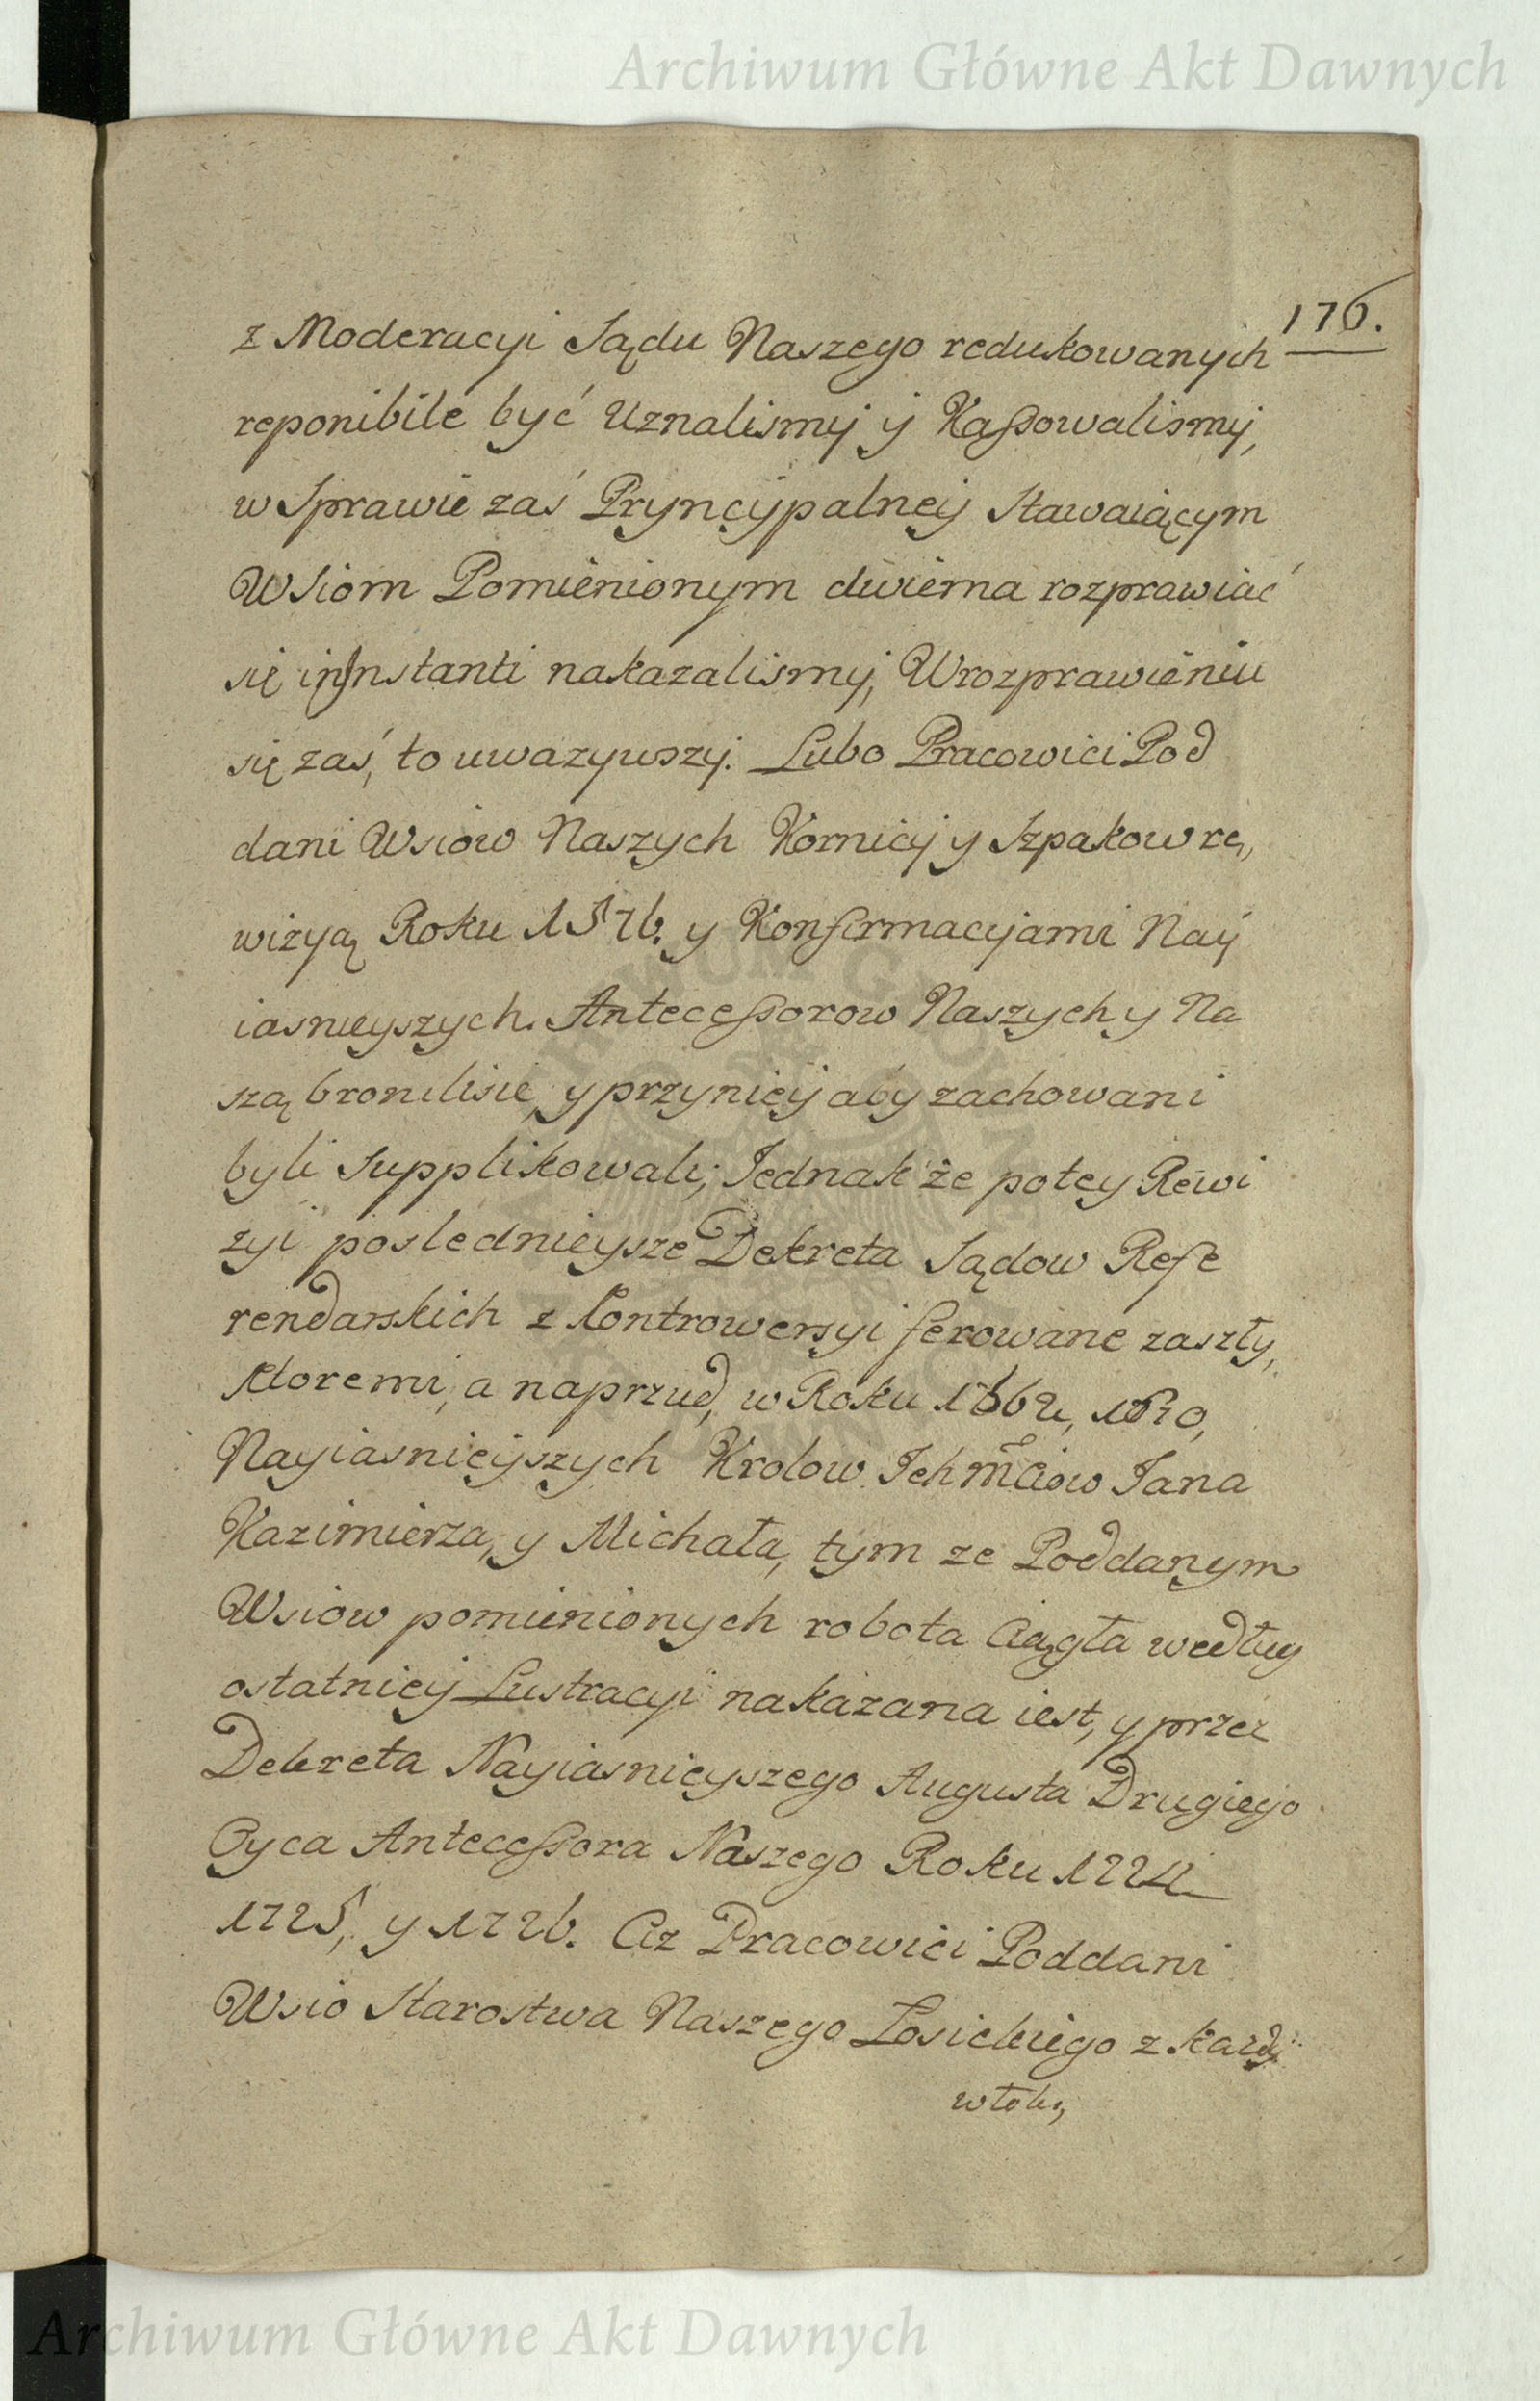 Archiwum Główne Akt Dawnych
176.
z Moderacyi Sądu Naszego redukowanych
reponibile być Uznalismy y Kassowalismy,
w Sprawie zaś Pryncypalney Stawaiącym
Wsiom Pomienionym dwiema rozprawiać
się inInstanti nakazalismy, Wrozprawieniu
się zaś, to uwazywszy. Lubo Pracowici Pod
dani Wsiow Naszych Kornicy y Szpakow re,
wizyą Roku 1576. y Konfirmacyjami Nay
iasnieyszych. Antecessorow Naszych y Na
szą bronilisie y przyniey aby zachowani
byli Supplikowali; Jednak że potey Rewi
zyi poslednieysze Dekreta Sądow Refe
rendarskich z Kontrowersyi ferowane zaszły,
ktoremi, a naprzud, w Roku 1662, 1670,
Nayiasnieyszych Krolow Jchmciow Jana
Kazimierza, y Michała, tym ze Poddanym
Wsiow pomienionych robota Ciągła według
ostatniey Lustracyi nakazana iest, y przez
Dekreta Nayiasnieyszego Augusta Drugiego
Oyca Antecessora Naszego Roku 1724
1725, y 1726. Aż Pracowici Poddani
Wsio Starostwa Naszego Łosickiego z każdy
włoki,
Archiwum Główne Akt Dawnych